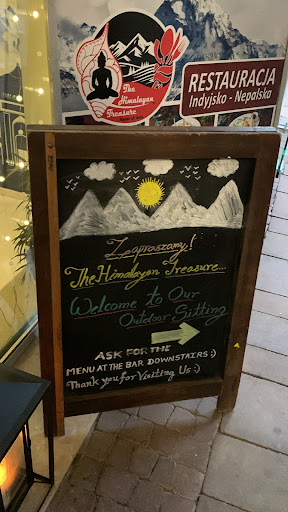 The
Himalayan
Treasure
RESTAURACJA
Indyjsko - Nepalska
Zapraszamy!
The Himalayan Treasure...
Welcome to Our
Outdoor Sitting
ASK FOR THE
MENU AT THE BAR DOWNSTAIRS :)
Thank you for Visiting Us :)